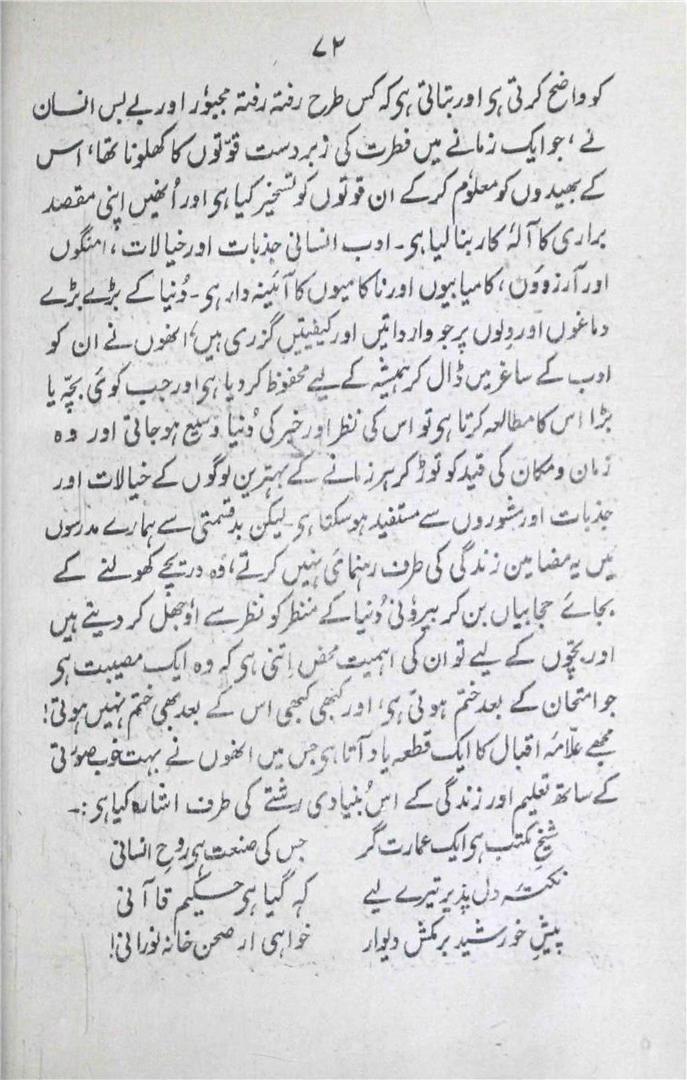 ۷۲
کو واضح کرتی ہی اور بتاتی ہی کہ کس طرح رفتہ رفتہ مجبوُر اور بے بس انسان
نے، جو ایک زمانے میں فطرت کی زبردست قوّتوں کا کھلونا تھا، اس
کے بھیدوں کو معلوُم کرکے ان قوتوں کو تسخیر کیا ہی اور اُنھیں اپنی مقصد
براری کا آلۂ کار بنا لیا ہی۔ ادب انسانی جذبات اور خیالات، امنگوں
اور آرزووں، کامیابیوں اور ناکامیوں کا آئینہ دار ہی۔ دُنیا کے بڑے بڑے
دماغوں اور دِلوں پر جو وارداتیں اور کیفیتیں گزری ہیں، انھوں نے ان کو
ادب کے ساغر میں ڈال کر ہمیشہ کے لیے محفوظ کردیا ہی اور جب کوئ بچّہ یا
بڑا اس کا مطالعہ کرتا ہی تو اس کی نظر اور خبر کی دُنیا وسیع ہوجاتی اور وہ
زمان و مکان کی قید کو توڑ کر ہر زمانے کے بہترین لوگوں کے خیالات اور
جذبات اور مشوروں سے مستفید ہوسکتا ہی۔ لیکن بدقسمتی سے ہمارے مدرسوں
میں یہ مضامین زندگی کی طرف رہنمائ نہیں کرتے، وُہ دریچے کھولنے کے
بجائے حجابیاں بن کر بیروُنی دُنیا کے منظر کو نظر سے اوُجھل کر دیتے ہیں
اور بچّوں کے لیے تو ان کی اہمیت محض اِتنی ہی کہ وہ ایک مصیبت ہی
جو امتحان کے بعد ختم ہوتی ہی، اور کبھی کبھی اس کے بعد بھی ختم نہیں ہوتی!
مجھے علّامہ اقبال کا ایک قطعہ یاد آتا ہی جس میں انھوں نے بہت خوب صوُرتی
کے ساتھ تعلیم اور زندگی کے اس بُنیادی رشتے کی طرف اشارہ کیا ہی:۔
شیخِ مکتب ہی ایک عمارت گر جس کی صنعت ہی روُحِ انسانی
نکتۂ دل پذیر تیرے لیے کہ گیا ہی حکیم قاآنی
پیشِ خورشید بر مکش دیوار خواہی ار صحنِ خانہ نورانی!